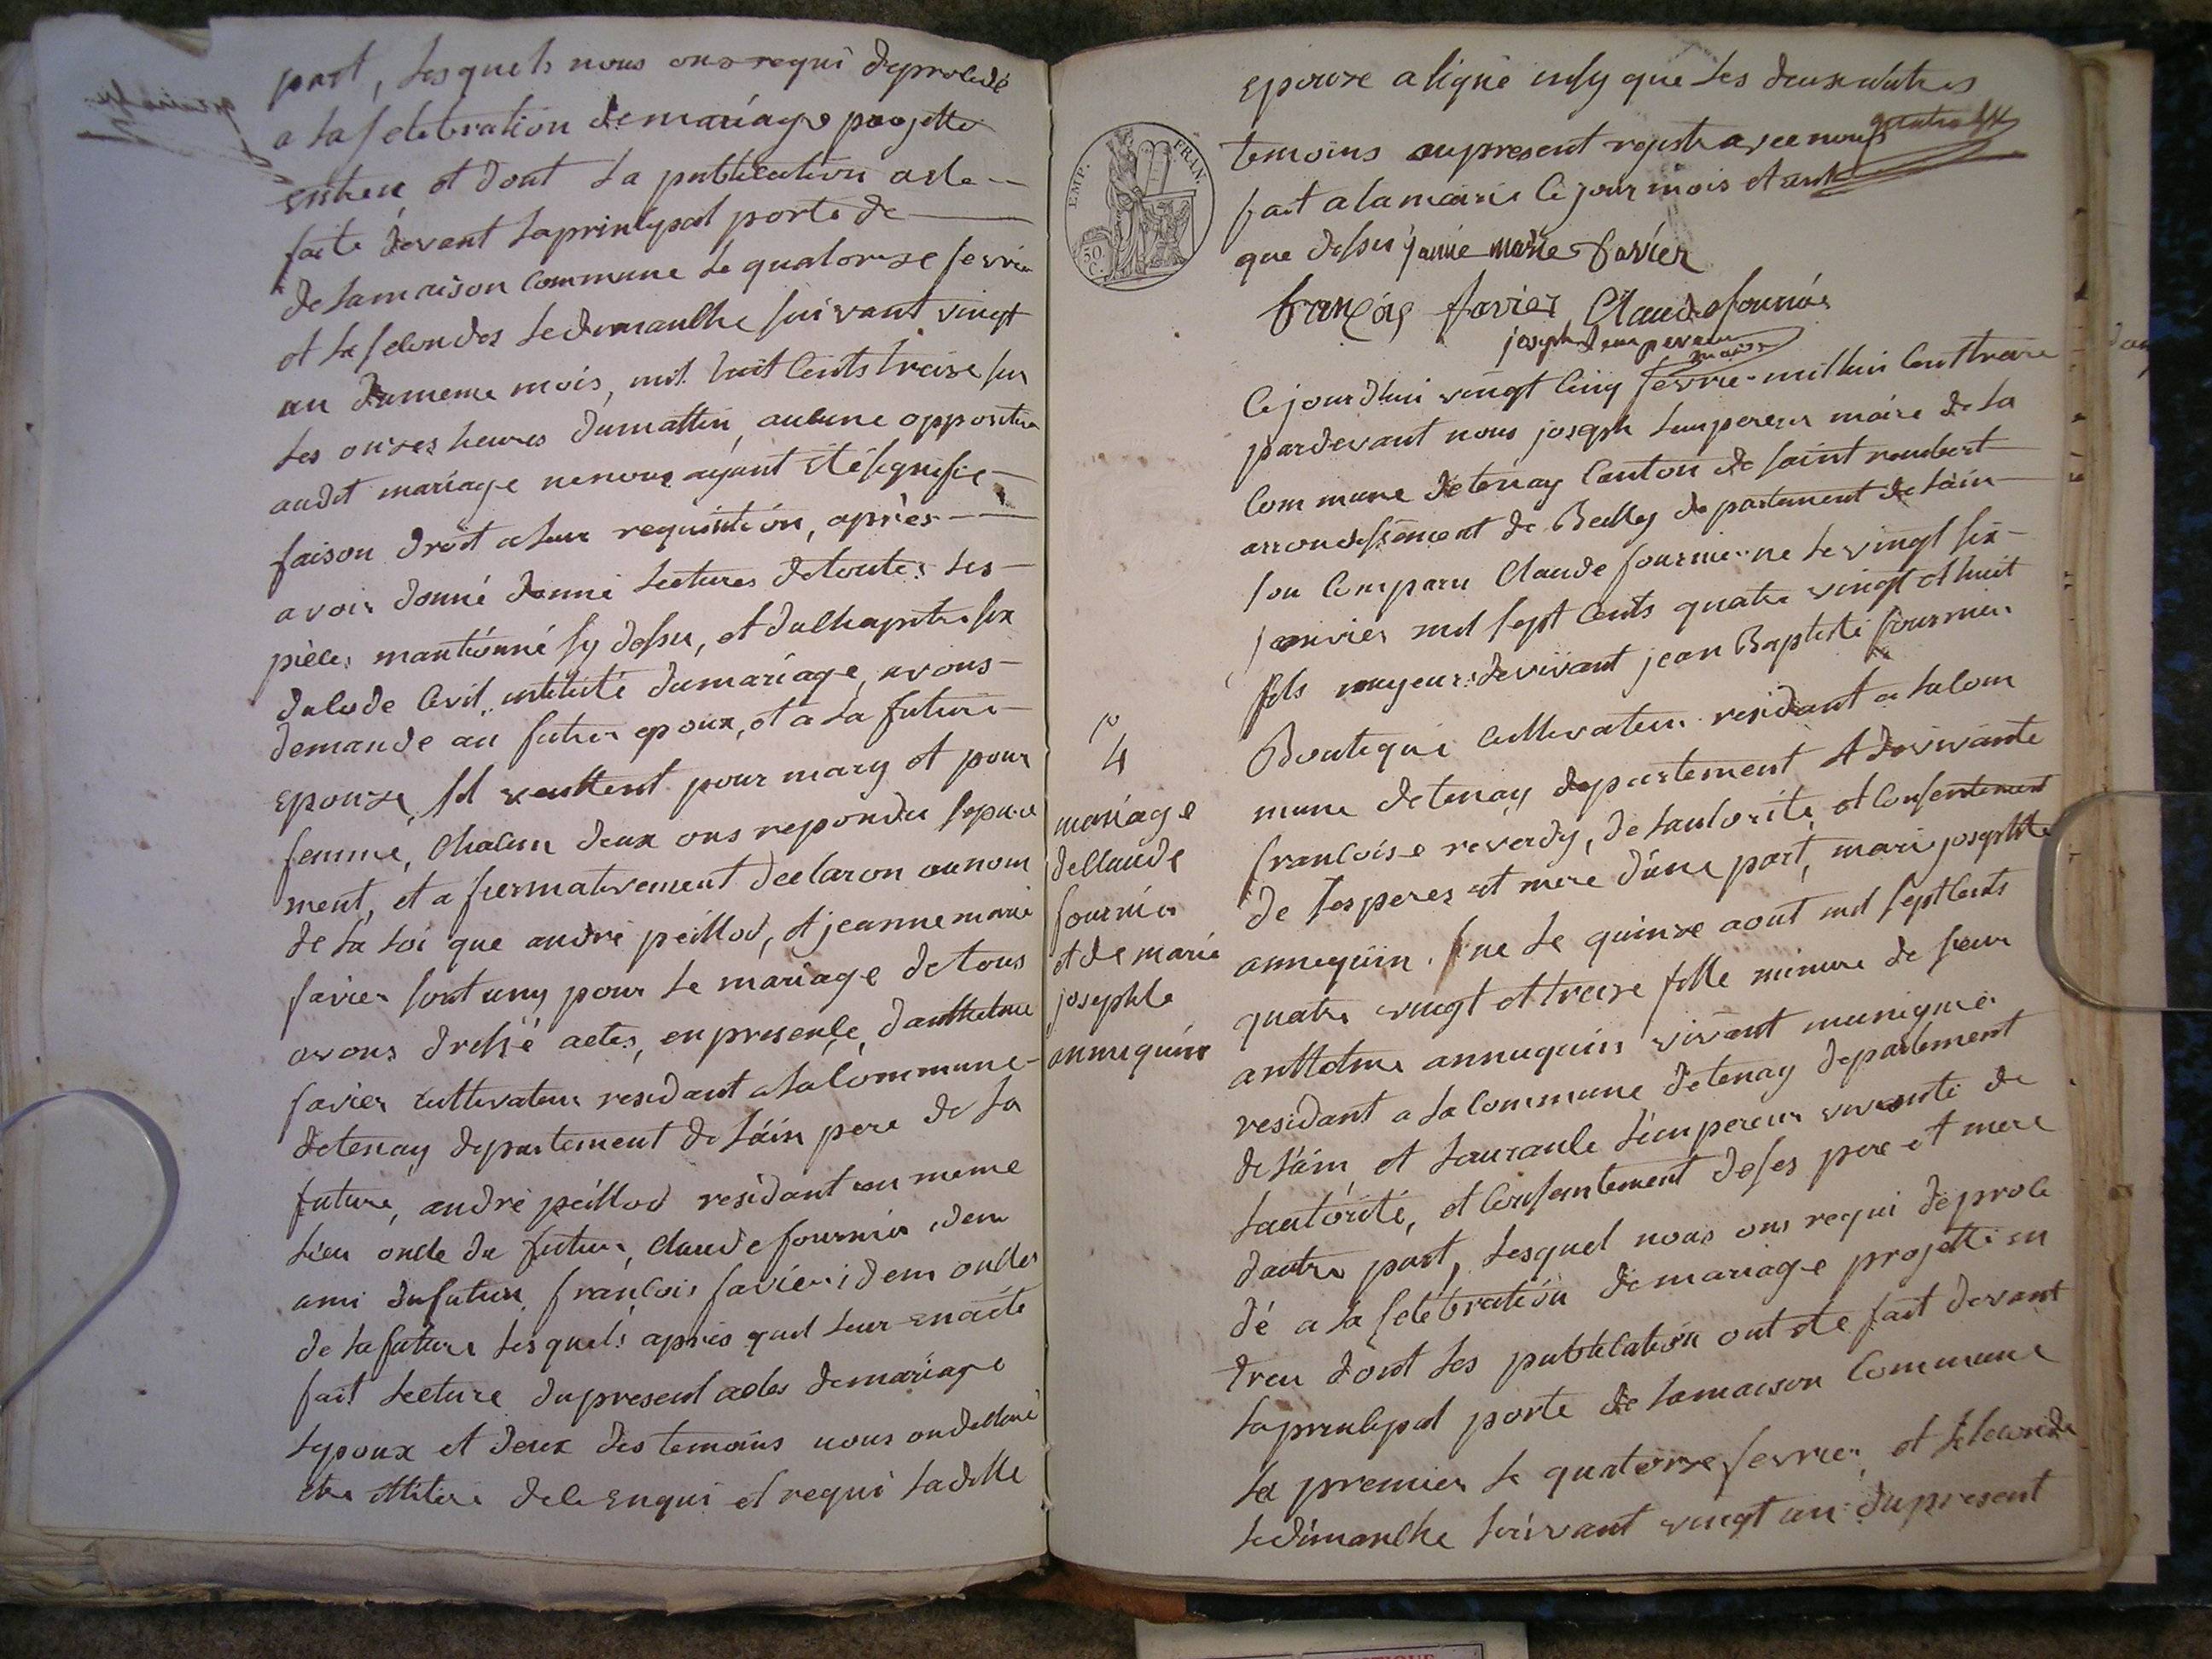 part, lesquels nous ons requi deprocedé
a la selebration de mariage projetté
entreu et dont la publication a ete
faite devant laprincipal porte de
de lamaison commune le quatorze fevrier
et la secondes ledimanche suivant vingt
un dumeme mois, mil huit cents treize sur
les onzes heures dumattin, aucune opposition
audit mariage nenous ayant été signifié
faison droit a leur requisition, après
avoir donné donné lectures detoutes les
pièces mantionné sy dessu, et duchapitre six
ducode civil intitulé dumariage, avons
demande au futur epoux, et a la future
epouze sil veullent pour mary et pour
femme, chacun deux ons repondu separe
ment, et afermativement declaron aunom
de la loi que andré péillod, et jeanne marie
favier sont uny pour le mariage detous
avons dressé actes, en presence, danthelme
favier cultivateur residant a la commune
detenay departement de láin pere de la
future, andré péillod residant au meme
lieu oncle du futur, claude fournier idem
ami dufutur françois favier idem oncles
de lafuture lesquels apres quil leur en aété
fait lecture dupresent actes demariage
lepoux et deux des temoins nous ondeclaré
etre illitere dece enqui et requi ladille
EMP. FRAN.
50 C.
epouze a signé insy que les deux autres
temoins aupresent registre avec nous
fait a lamairie le jour mois et ans
que dessu janne marie favier
françois favier Claude fournier
joseph lempereur
maire
Cejourdhui vingt cinq fevrier mil huis cent treize
pardevant nous joseph lempereur maire de la
commune detenay canton de saint rembert
arrondissement de Belley departement de láin
son comparu Claude fournier ne le vingt six
janvier mil sept cents quatre vingt et huit
fils mayeur devivant jean Baptiste fournier
Boutequi cultivateur residant a lacom
mune detenay departement et devivante
francoise reverdy, de lautorite, et consentement
de ses peres et mere d'une part, mari josephte
annequin ne le quinze aout mil sept cents
quatre vingt et treize fille mineure de sieur
anttelme annequin vivant munignié
residant a la commune detenay departement
de láin et laurance lémpereur vivante de
lautorité, et consentement de ses pere et mere
dautre part, lesquel nous ons requi deproce
dé a la selebration de mariage projetté en
treu dont les publication ont ete fait devant
laprincipal porte de lamaison commune
le premier le quatorze fevrier, et lesecondes
ledimanche suivant vingt un dupresent
4
mariage
declaude
fournier
et de marie
josephte
annequin